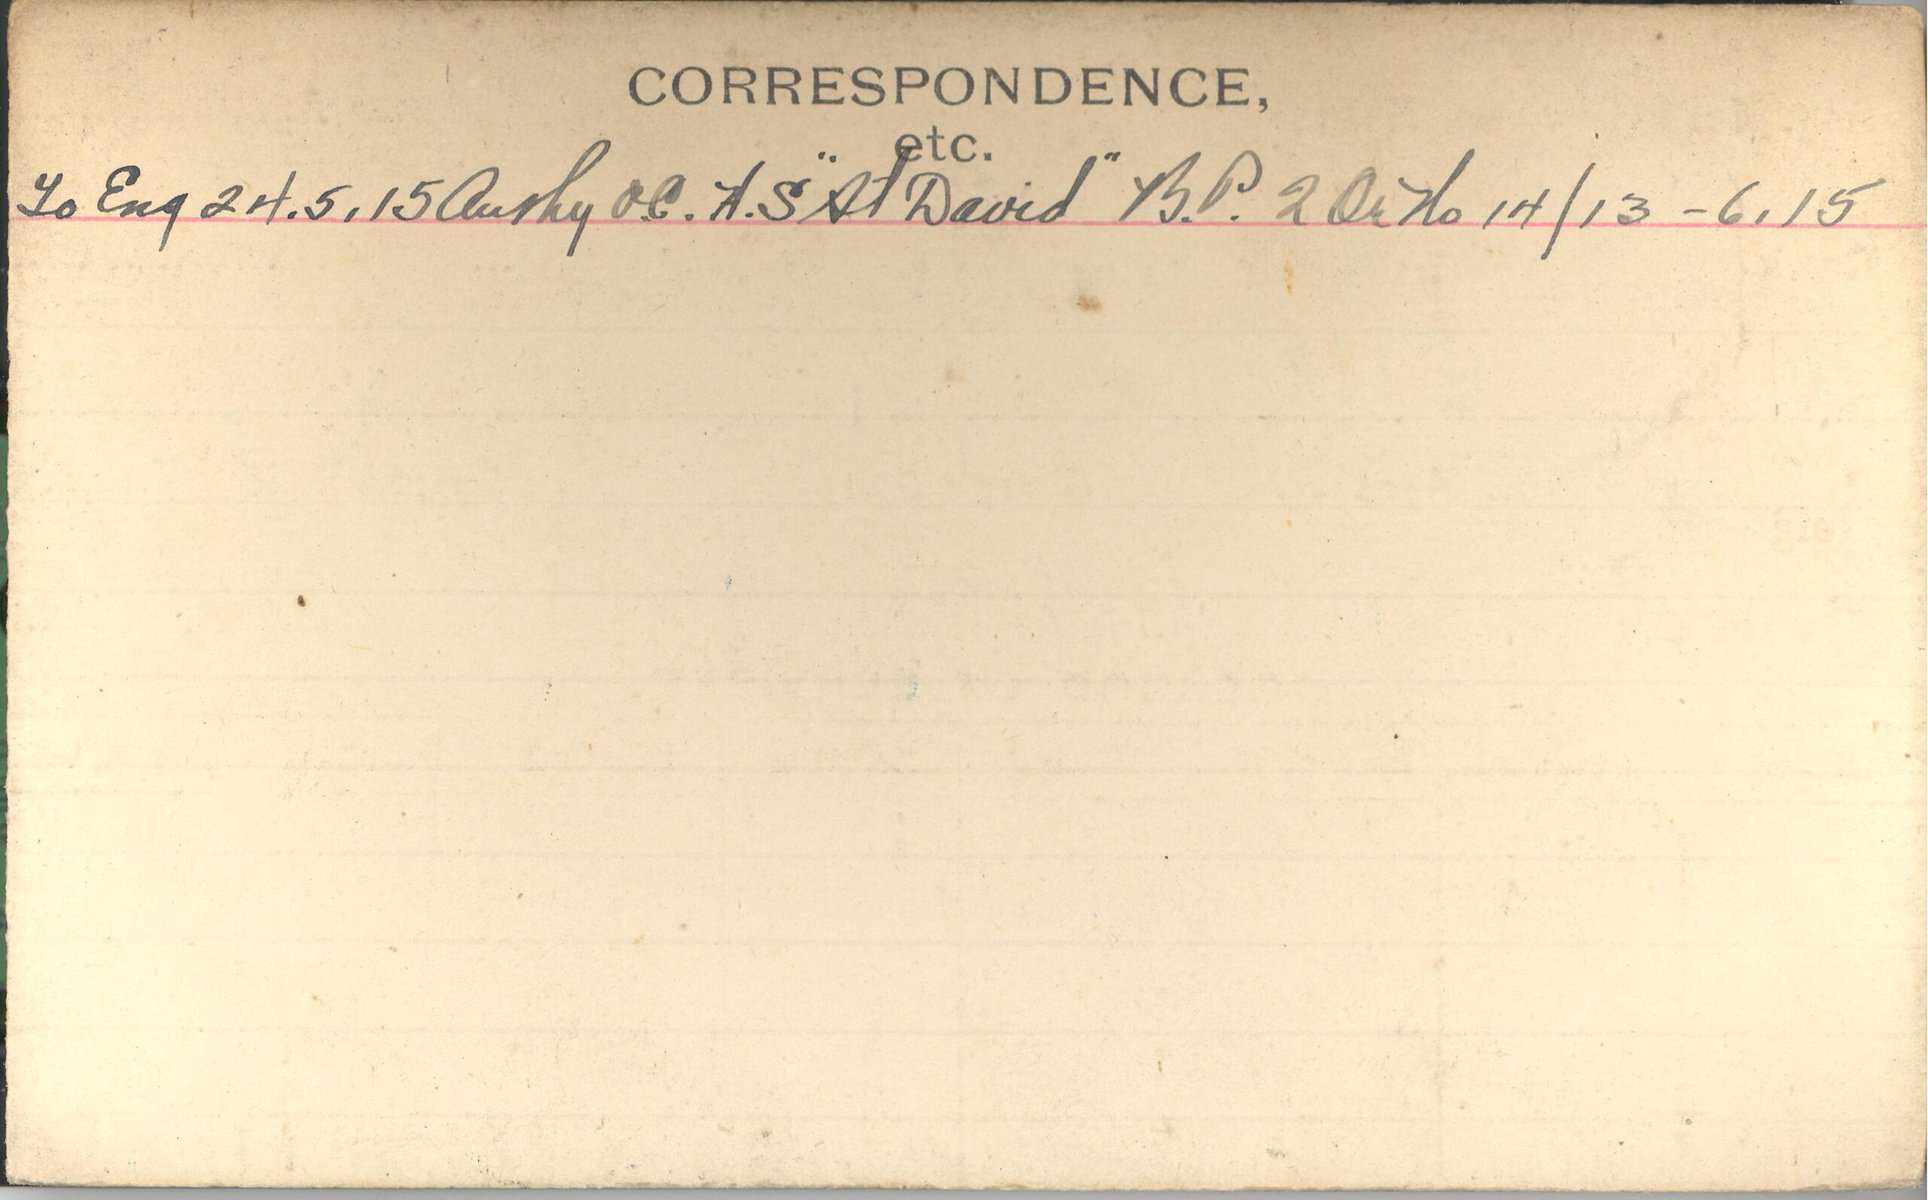 CORRESPONDENCE,
etc.
To Eng 24.5.15 Authy O.C. H.S "St David" B.P. 2 Or No 14/13-6.15